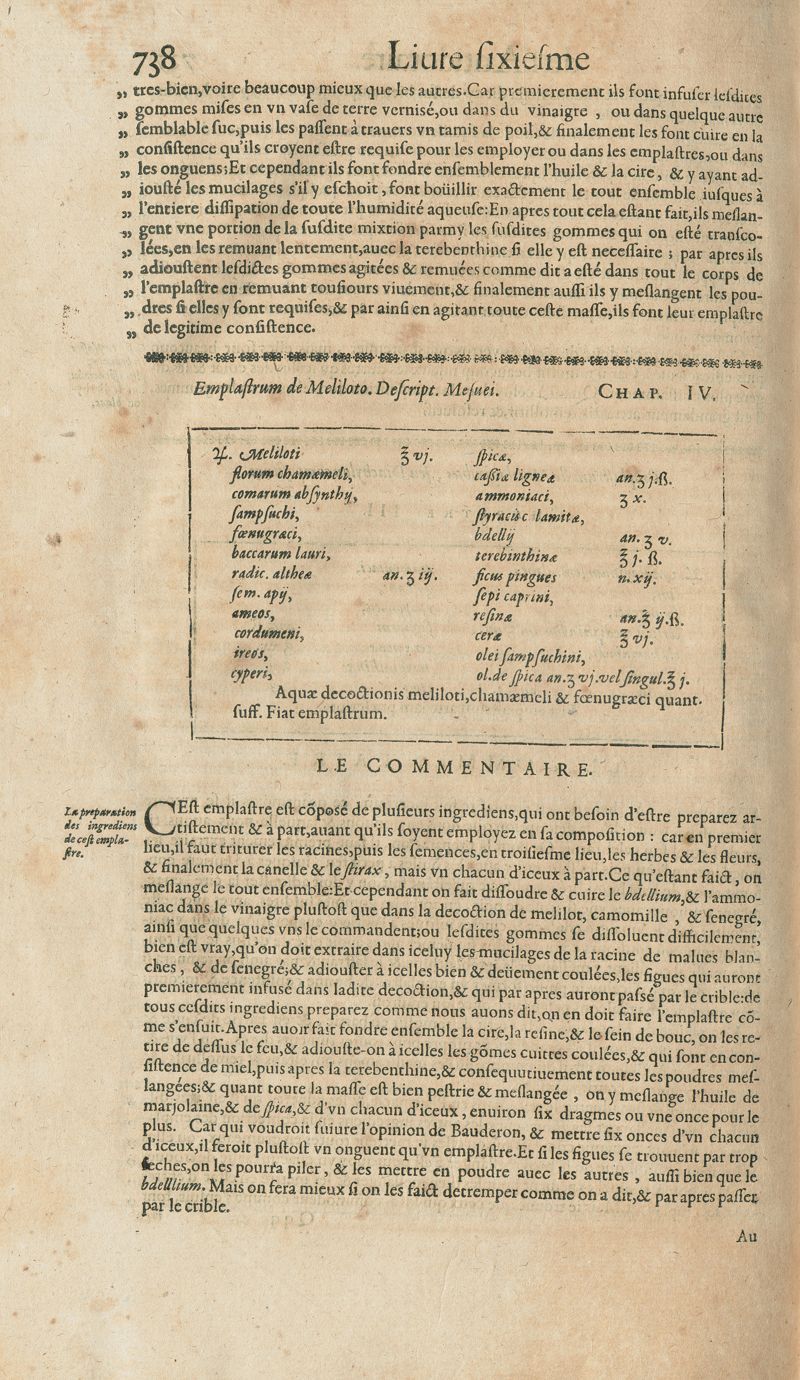 738 Liure ſixieſme
„ tres-bien,voire beaucoup mieux que les autres.Car premierement ils font infuſer leſdites
„ gommes miſes en vn vaſe de terre verniſé,ou dans du vinaigre , ou dans quelque autre
„ ſemblable ſuc,puis les paſſent à trauers vn tamis de poil,& finalement les font cuire en la
„ conſiſtence qu'ils croyent eſtre requiſe pour les employer ou dans les emplaſtres,ou dans
„ les onguens;Et cependant ils font fondre enſemblement l'huile & la cire, & y ayant ad-
„ iouſté les mucilages s'il y eſchoit , font boüillir exactement le tout enſemble iuſques à
„ l'entiere diſſipation de toute l'humidité aqueuſe:En apres tout cela eſtant fait,ils meſlan-
„ gent vne portion de la ſuſdite mixtion parmy les ſuſdites gommes qui on eſté tranſco-
„ lées,en les remuant lentement,auec la terebenthine ſi elle y eſt neceſſaire ; par apres ils
„ adiouſtent leſdictes gommes agitées & remuées comme dit a eſté dans tout le corps de
„ l'emplaſtre en remuant touſiours viuement,& finalement auſſi ils y meſlangent les pou-
„ dres ſi elles y ſont requiſes,& par ainſi en agitant toute ceſte maſſe,ils font leur emplaſtre
„ de legitime conſiſtence.
Emplaſtrum de Meliloto. Deſcript. Meſuei. CHAP. IV.
♃. Meliloti ℥ vj.
florum chamæmeli,
comarum abſynthij,
ſampſuchi,
fœnugræci,
baccarum lauri,
radic. altheæ an. ʒ iij.
ſem. apij,
ameos,
cordumeni,
ireos,
cyperi,
ſpicæ,
caßiæ ligneæ an.ʒ j.ß.
ammoniaci, ʒ x.
ſtyracis c lamitæ,
bdellij an. ʒ v.
terebinthinæ ℥ j. ß.
ficus pingues n.xij.
ſepi caprini,
reſinæ an.℥ ij.ß.
ceræ ℥ vj.
olei ſampſuchini,
ol.de ſpica an.ʒ vj.vel ſingul.℥ j.
Aquæ decoctionis meliloti,chamæmeli & fœnugræci quant.
ſuff. Fiat emplaſtrum.
LE COMMENTAIRE.
La preparation
des ingrediens
de ceſt empla-
ſtre.
CEſt emplaſtre eſt cõpoſé de pluſieurs ingrediens,qui ont beſoin d'eſtre preparez ar-
tiſtement & à part,auant qu'ils ſoyent employez en ſa compoſition : car en premier
lieu,il faut triturer les racines,puis les ſemences,en troiſieſme lieu,les herbes & les fleurs,
& finalement la canelle & le ſtirax, mais vn chacun d'iceux à part.Ce qu'eſtant faict, on
meſlange le tout enſemble:Et cependant on fait diſſoudre & cuire le bdellium,& l'ammo-
niac dans le vinaigre pluſtoſt que dans la decoction de melilot, camomille , & fenegré,
ainſi que quelques vns le commandent;ou leſdites gommes ſe diſſoluent difficilement,
bien eſt vray,qu'on doit extraire dans iceluy les mucilages de la racine de malues blan-
ches , & de fenegré;& adiouſter à icelles bien & deüement coulées,les figues qui auront
premierement infuſé dans ladite decoction,& qui par apres auront paſsé par le crible:de
tous ceſdits ingrediens preparez comme nous auons dit,on en doit faire l'emplaſtre cõ-
me s'enſuit.Apres auoir fait fondre enſemble la cire,la reſine,& le ſein de bouc, on les re-
tire de deſſus le feu,& adiouſte-on à icelles les gõmes cuittes coulées,& qui ſont en con-
ſiſtence de miel,puis apres la terebenthine,& conſequutiuement toutes les poudres meſ-
langées;& quant toute la maſſe eſt bien peſtrie & meſlangée , on y meſlange l'huile de
marjolaine,& de ſpica,& d'vn chacun d'iceux , enuiron ſix dragmes ou vne once pour le
plus. Car qui voudroit ſuiure l'opinion de Bauderon, & mettre ſix onces d'vn chacun
d'iceux,il feroit pluſtoſt vn onguent qu'vn emplaſtre.Et ſi les figues ſe trouuent par trop
ſeches,on les pourra piler , & les mettre en poudre auec les autres , auſſi bien que le
bdellium. Mais on fera mieux ſi on les faict detremper comme on a dit,& par apres paſſer
par le crible.
Au